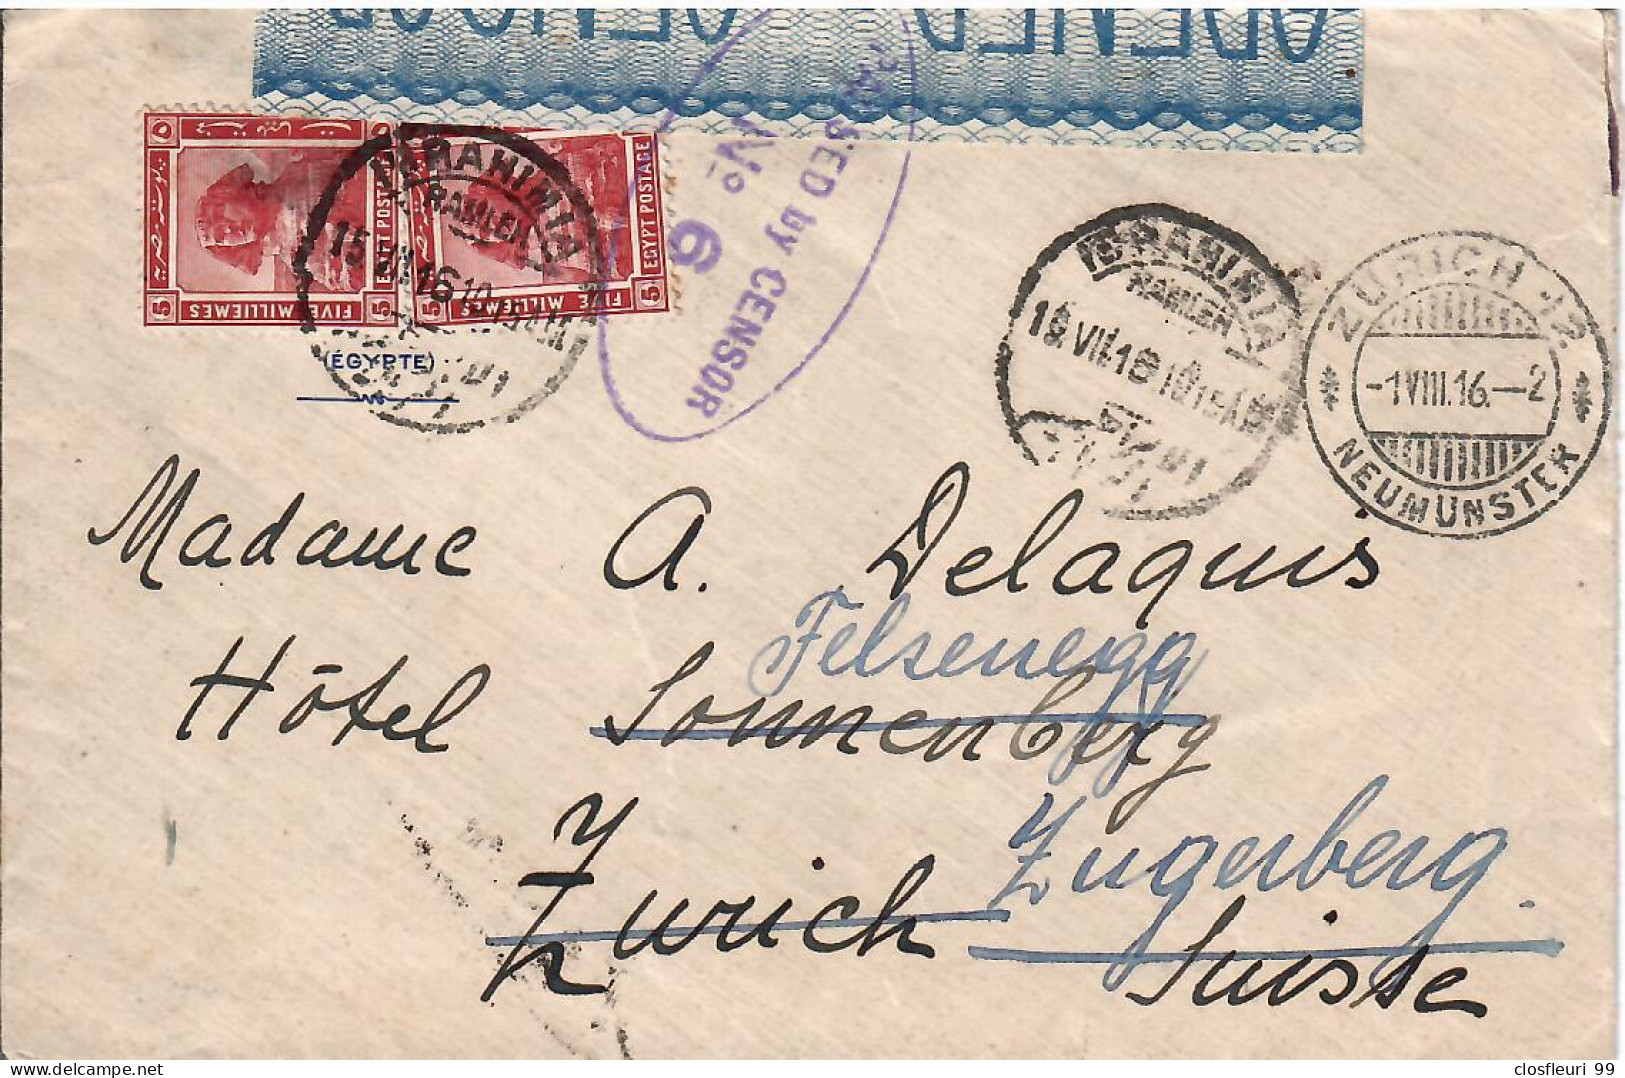 OPENED
PASSED by CENSOR
No 6
FIVE MILLIEMES
EGYPT POSTAGE
5
5
FIVE MILLIEMES
EGYPT POSTAGE
5
5
IBRAHIMIA
RAMLEH
15 VII 16 10
(ÉGYPTE)
IBRAHIMIA
RAMLEH
ZÜRICH 12
-1 VIII.16.-2
NEUMÜNSTER
Madame A. Delaquis
Felsenegg
Hôtel Sonnenberg
Zugerberg.
Zurich
Suisse
closfleuri 99